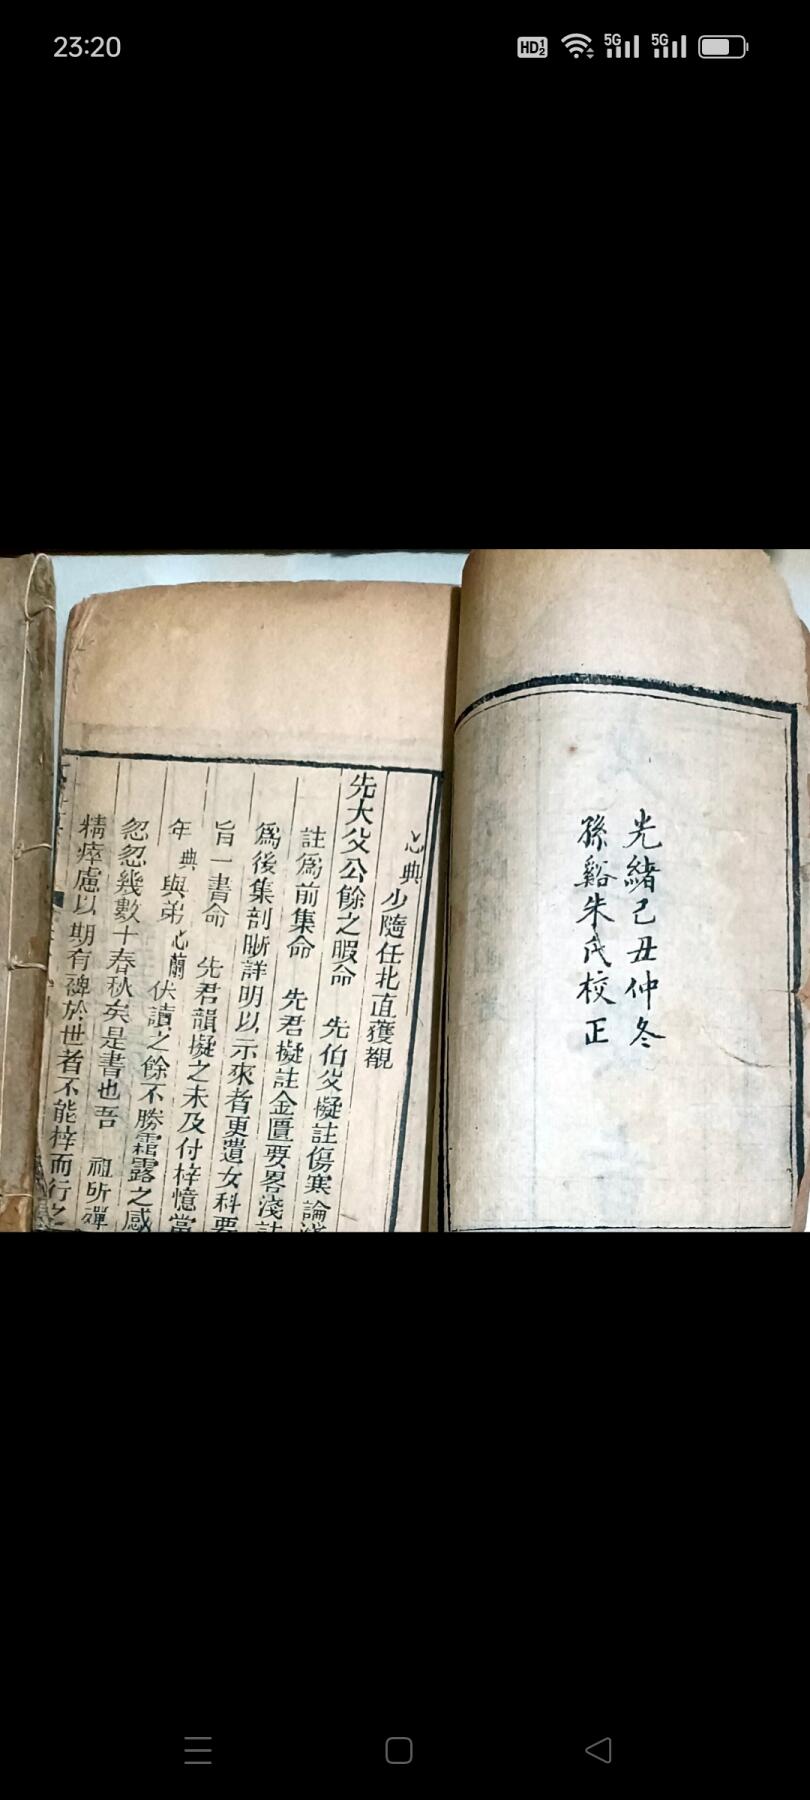 23:20
HD 1 2
5G
5G
光緒己丑仲冬
孫谿朱氏校正
心典少隨任北直獲覩
先大父公餘之暇命 先伯父擬註傷寒論淺
註為前集命 先君擬註金匱要畧淺註
為後集剖晰詳明以示來者更遺女科要
旨一書命 先君韻擬之未及付梓憶當
年典與弟心蘭伏讀之餘不勝霜露之感
忽忽幾數十春秋矣是書也吾 祖所殫
精瘁慮以期有裨於世者不能梓而行之